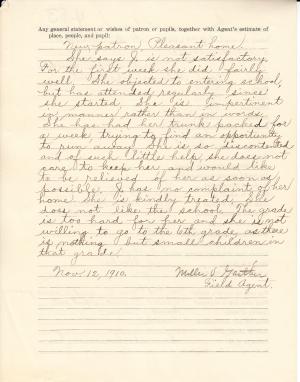 Any general statement or wishes of patron or pupils, together with Agent's estimate of
place, people, and pupil:
New patron. Pleasant home.
She says J. is not satisfactory.
For the first week she did fairly
well. She objected to entering school,
but has attended regularly since
she started. She is impertinent
in manner rather than in words.
She has had her trunk packed for
a week trying to find an opportunity
to run away. She is so discontented
and of such little help she does not
care to keep her and would like
to be relieved of her as soon as
possible. J. has no complaint of her
home. She is kindly treated. She
does not like the school. The grade
is too hard for her and she is not
willing to go to the 6th grade, as there
is nothing but small children in
that grade.
Nov. 12, 1910.
Field Agent.